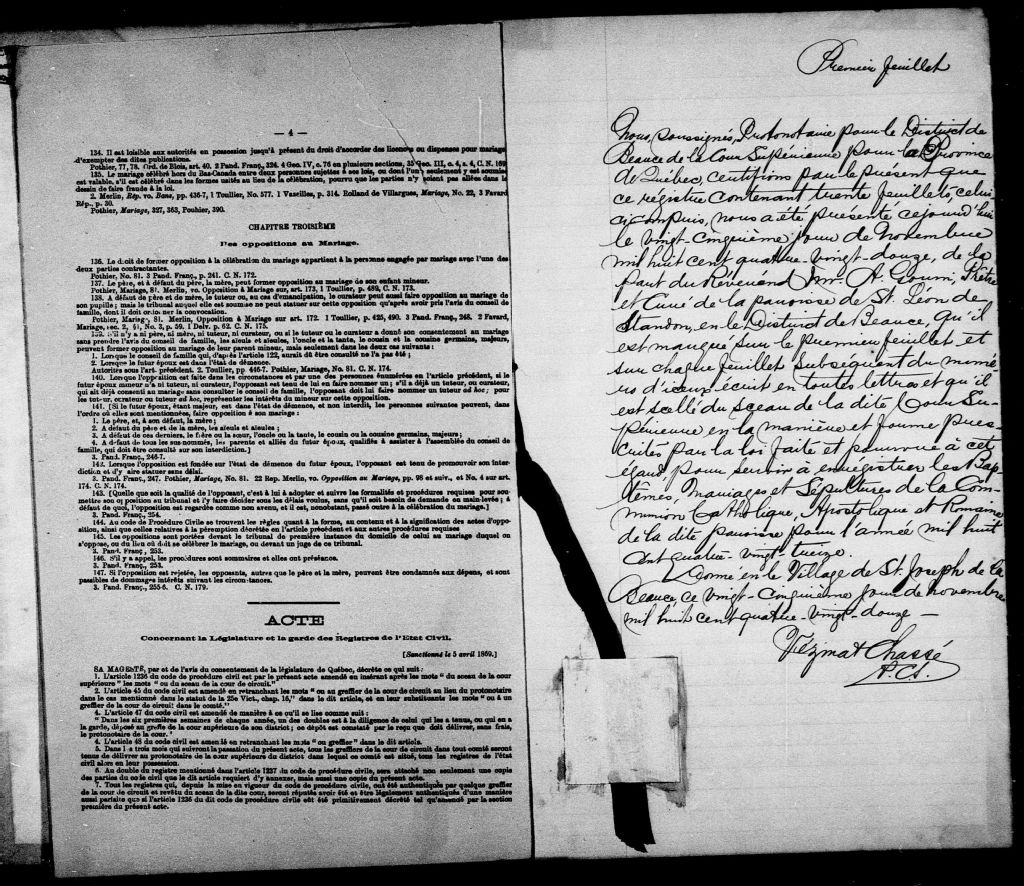 — 4 —
134. Il est loisible aux autorités en possession jusqu'à présent du droit d'accorder des licences ou dispenses pour mariage
d'exempter des dites publications.
Pothier, 77, 78. Ord. de Blois, art. 40, 2 Pand. Franç., 324. 4 Geo. IV, c. 76 en plusieurs sections, 35 Geo. III, c. 4, s. 4, C. N. 169
135. Le mariage célébré hors du Bas-Canada entre deux personnes sujettes à ses lois, ou dont l'un seulement y est soumise
est valable, s'il est célébré dans les formes usités au lieu de la célébration, pourvu que les parties n'y soient pas allées dans le
dessin de faire fraude à la loi.
2. Merlin, Rép. vo. Bans, pp. 436-7, 1 Toullier, No. 577. 1 Vazeilles, p. 314. Rolland de Villargues, Mariage, No. 22, 3 Favard
Rép., p. 30.
Pothier, Mariage, 327, 363, Pouhier, 390.
CHAPITRE TROISIÈME
Des oppositions au Mariage.
136. Le droit de former opposition à la célébration du mariage appartient à la personne engagée par mariage avec l'une des
deux parties contractantes.
Pothier, No. 81. 3 Pand. Franç., p. 241. C. N. 172.
137. Le père, et à défaut du père, la mère, peut former opposition au mariage de son enfant mineur.
Pothier, Mariage, 81. Merlin, vo. Opposition à Mariage sur art. 173, 1 Toullier, p. 489, C. N. 173.
138. A défaut de père et de mère, le tuteur ou, au cas d'émancipation, le curateur peut aussi faire opposition au mariage de
son pupille; mais le tribunal auquel elle est soumise ne peut statuer sur cette opposition qu'après avoir pris l'avis du conseil de
famille, dont il doit ordonner la convocation.
Pothier, Mariage, 81. Merlin, Opposition à Mariage sur art. 172. 1 Toullier, p. 425, 490. 3 Pand. Franç., 248. 2 Favard,
Mariage, sec. 2, §1, No. 3, p. 59. 1 Delv. p. 62. C. N. 175.
139. S'il n'y a ni père, ni mère, ni tuteur, ni curateur, ou si le tuteur ou le curateur a donné son consentement au mariage
sans prendre l'avis du conseil de famille, les aïeuls et aïeules, l'oncle et la tante, le cousin et la cousine germains, majeurs,
peuvent former opposition au mariage de leur parent mineur, mais seulement dans les deux cas suivants :
1. Lorsque le conseil de famille qui, d'après l'article 122, aurait dû être consulté ne l'a pas été ;
2. Lorsque le futur époux est dans l'état de démence.
Autorités sous l'art. précédent. 2. Toullier, pp. 446-7. Pothier, Mariage, No. 81. C. N. 174.
140. Lorsque l'opposition est faite dans les circonstances et par une des personnes énumérées en l'article précédent, si le
futur époux mineur n'a ni tuteur, ni curateur, l'opposant est tenu de lui en faire nommer un ; s'il a déjà un tuteur, ou curateur,
qui ait déjà consenti au mariage sans consulter le conseil de famille, l'opposant doit lui faire nommer un tuteur ad hoc ; pour
les tuteur, curateur ou tuteur ad hoc, représenter les intérêts du mineur sur cette opposition.
141. [Si le futur époux, étant majeur, est dans l'état de démence, et non interdit, les personnes suivantes peuvent, dans
l'ordre où elles sont mentionnées, faire opposition à son mariage :
1. Le père, et, à son défaut, la mère ;
2. A défaut du père et de la mère, les aïeuls et aïeules ;
3. A défaut de ces derniers, le frère ou la sœur, l'oncle ou la tante, le cousin ou la cousine germains, majeurs ;
4. A défaut de tous les sus-nommés, les parents et alliés du futur époux, qualifiés à assister à l'Assemblée du conseil de
famille, qui doit être consulté sur son interdiction.]
3. Pand. Franç., 246-7.
142. Lorsque l'opposition est fondée sur l'état de démence du futur époux, l'opposant est tenu de promouvoir son inter-
diction et d'y aire statuer sans délai.
3. Pand. Franç., 247. Pothier, Mariage, No. 81. 22 Rep. Merlin, vo. Opposition au Mariage, pp. 98 et suiv., et No. 4 sur art.
174. C. N. 174.
143. [Quelque soit la qualité de l'opposant, c'est à lui à adopter et suivre les formalités et procédures requises pour sou-
mettre son opposition au tribunal et l'y faire décider sous les délais voulus, sans qu'il soit besoin de demande en main-levée ; à
défaut de quoi, l'opposition est regardée comme non avenue, et il est, nonobstant, passé outre à la célébration du mariage.]
3. Pand. Franç., 254.
144. Au code de Procédure Civile se trouvent les règles quant à la forme, au contenu et à la signification des actes d'oppo-
sition, ainsi que celles relatives à la péremption décrétée en l'article précédent et aux autres procédures requises
145. Les oppositions sont portées devant le tribunal de première instance du domicile de celui au mariage duquel on
s'oppose, ou du lieu où doit se célébrer le mariage, ou devant un juge de ce tribunal.
3. Pand. Franç., 253.
146. S'il y a appel, les procédures sont sommaires et elles ont préséance.
3. Pand. Franç., 253.
147. Si l'opposition est rejetée, les opposants, autres que le père et la mère, peuvent être condamnés aux dépens, et sont
passibles de dommages intérêts suivant les circonstances.
3. Pand. Franç., 255-6. C. N. 179.
ACTE
Concernant la Législature et la garde des Registres de l'Etat Civil.
[Sanctionné le 5 avril 1869.]
SA MAGESTÉ, par et de l'avis du consentement de la législature de Québec, décrète ce qui suit :
1. L'article 1236 du code de procédure civil est par le présent acte amendé en insérant après les mots " du sceau de la cour
supérieure " les mots " ou du sceau de la cour de circuit."
2. L'article 45 du code civil est amendé en retranchant les mots " ou au greffier de la cour de circuit au lieu du protonotaire
dans le cas mentionné dans le statut de la 25e Vict., chap. 16," dans le dit article, et en leur substituants les mots " ou à un
greffier de la cour de circuit dans le comté."
4. L'article 47 du code civil est amendé de manière à ce qu'il se lise comme suit :
" Dans les six premières semaines de chaque année, un des doubles est à la diligence de celui qui les a tenus, ou qui en a
la garde, déposé au greffe de la cour supérieure de son district ; ce dépôt est constaté par le reçu que doit délivrer, sans frais,
le protonotaire de la cour."
4. L'article 48 du code civil est amendé en retranchant les mots " ou greffier " dans le dit article.
5. Dans les trois mois qui suivront la passation du présent acte, tous les greffiers de la cour de circuit dans tout comté seront
tenus de délivrer au protonotaire de la cour supérieure du district dans lequel ce comté est situé, tous les registres de l'état
civil alors en leur possession.
6. Au double du registre mentionné dans l'article 1237 du code de procédure civile, sera attaché non seulement une copie
des parties du code civil que le dit article requiert d'y annexer, mais aussi une copie du présent acte.
7. Tous les registres qui, depuis la mise en vigueur du code de procédure civile, ont été authentiqués par quelque greffier
de la cour de circuit et revêtu du sceau de la dite cour, seront réputés avoir été et être légalement authentiqués d'une manière
aussi parfaite que si l'article 1236 du dit code de procédure civile eût été primitivement décrété tel qu'amendé par la section
première du présent acte.
Premier feuillet
Nous, soussignés, Protonotaire pour le District de
Beauce de la Cour Supérieure pour la Province
de Québec, certifions par le présent que
ce régistre contenant trente feuillets, celui
ci compris, nous a été présenté ce jour d'hui
le vingt-cinquième jour de Novembre
mil huit cent quatre-vingt-douze, de la
part du Révérend Mr. A. Gouin, Prêtre
et Curé de la paroisse de St. Léon de
Standon, en le District de Beauce, qu'il
est marqué sur le premier feuillet et
sur chaque feuillet subséquent du numé-
ro d'iceux, écrit en toutes lettres et qu'il
est scellé du sceau de la dite Cour Su-
périeure en la manière et forme pres-
crites par la loi faite et pourvue à cet
égard pour servir à enregistrer les Bap-
têmes, Mariages et Sépultures de la Com-
munion Catholique, Apostolique et Romaine
de la dite paroisse pour l'année mil huit
cent quatre-vingt-treize.
Donné en le Village de St. Joseph de la
Beauce, ce vingt-cinquième jour de novembre
mil huit cent quatre-vingt-douze —
Vézina & Chassé
P.C.S.